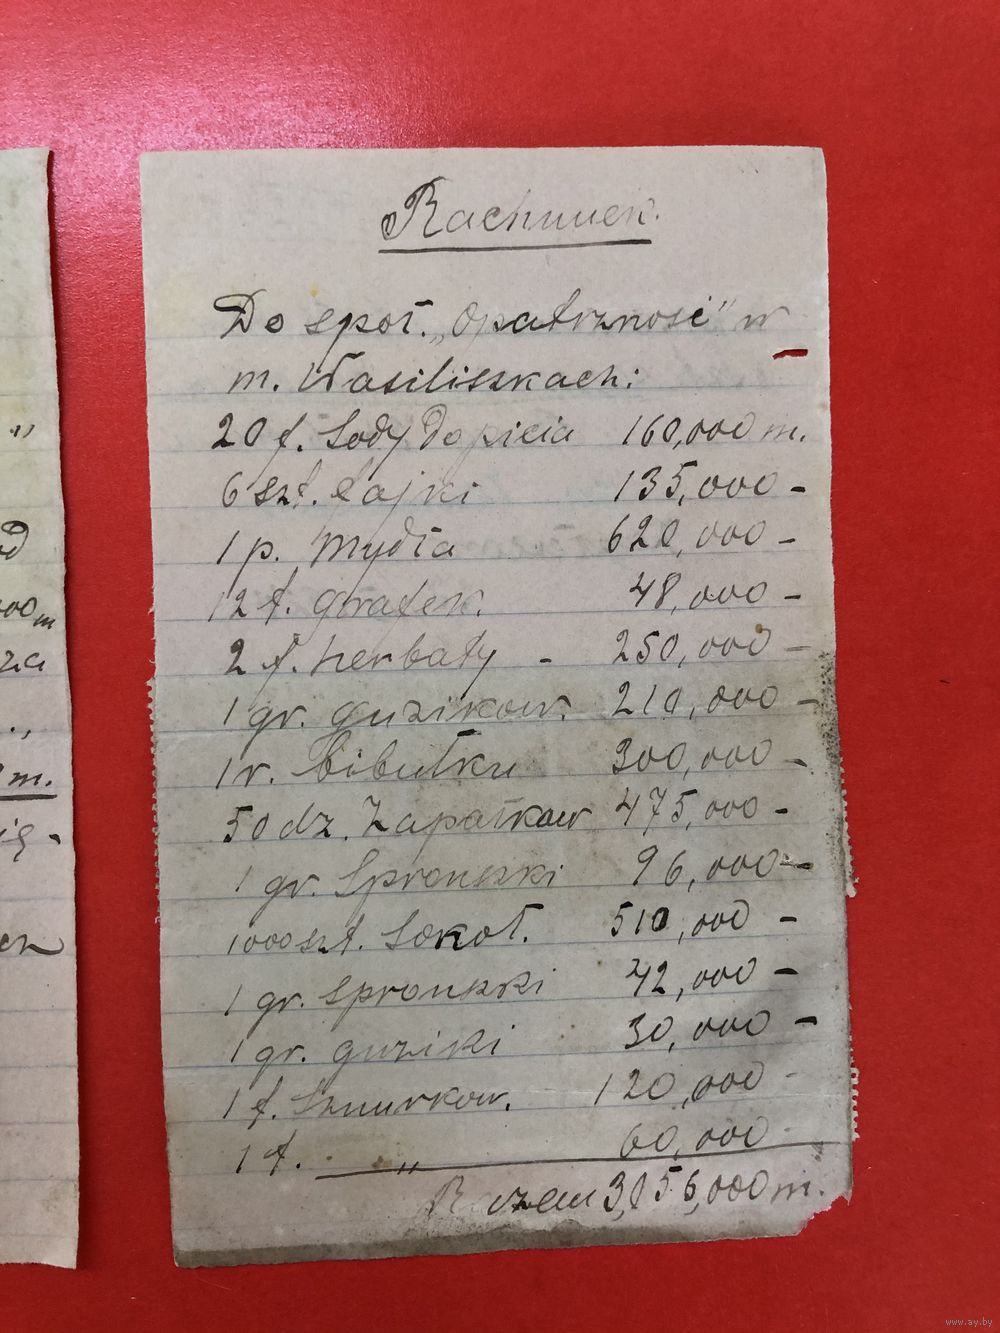 Rachunek.
Do społ. „Opatrzność" w
m. Wasiliszkach:
20 f. Sody do picia 160,000 m.
6 szt. fajki 135,000 -
1 p. Mydła 620,000 -
12 f. grafek. 48,000 -
2 f. herbaty - 250,000 -
1 gr. guzikow. 210,000 -
1 r. bibułku 300,000 -
50 dz. Zapałkow 475,000 -
1 gr. Spronszki 96,000 -
1000 szt. Sokoł. 510,000 -
1 gr. spronszki 42,000 -
1 gr. guziki 30,000 -
1 f. Sznurkow. 120,000 -
1 f. „ 60,000 -
Razem 3,056,000 m.
"
000 m
za
m.
ię -
www.ay.by